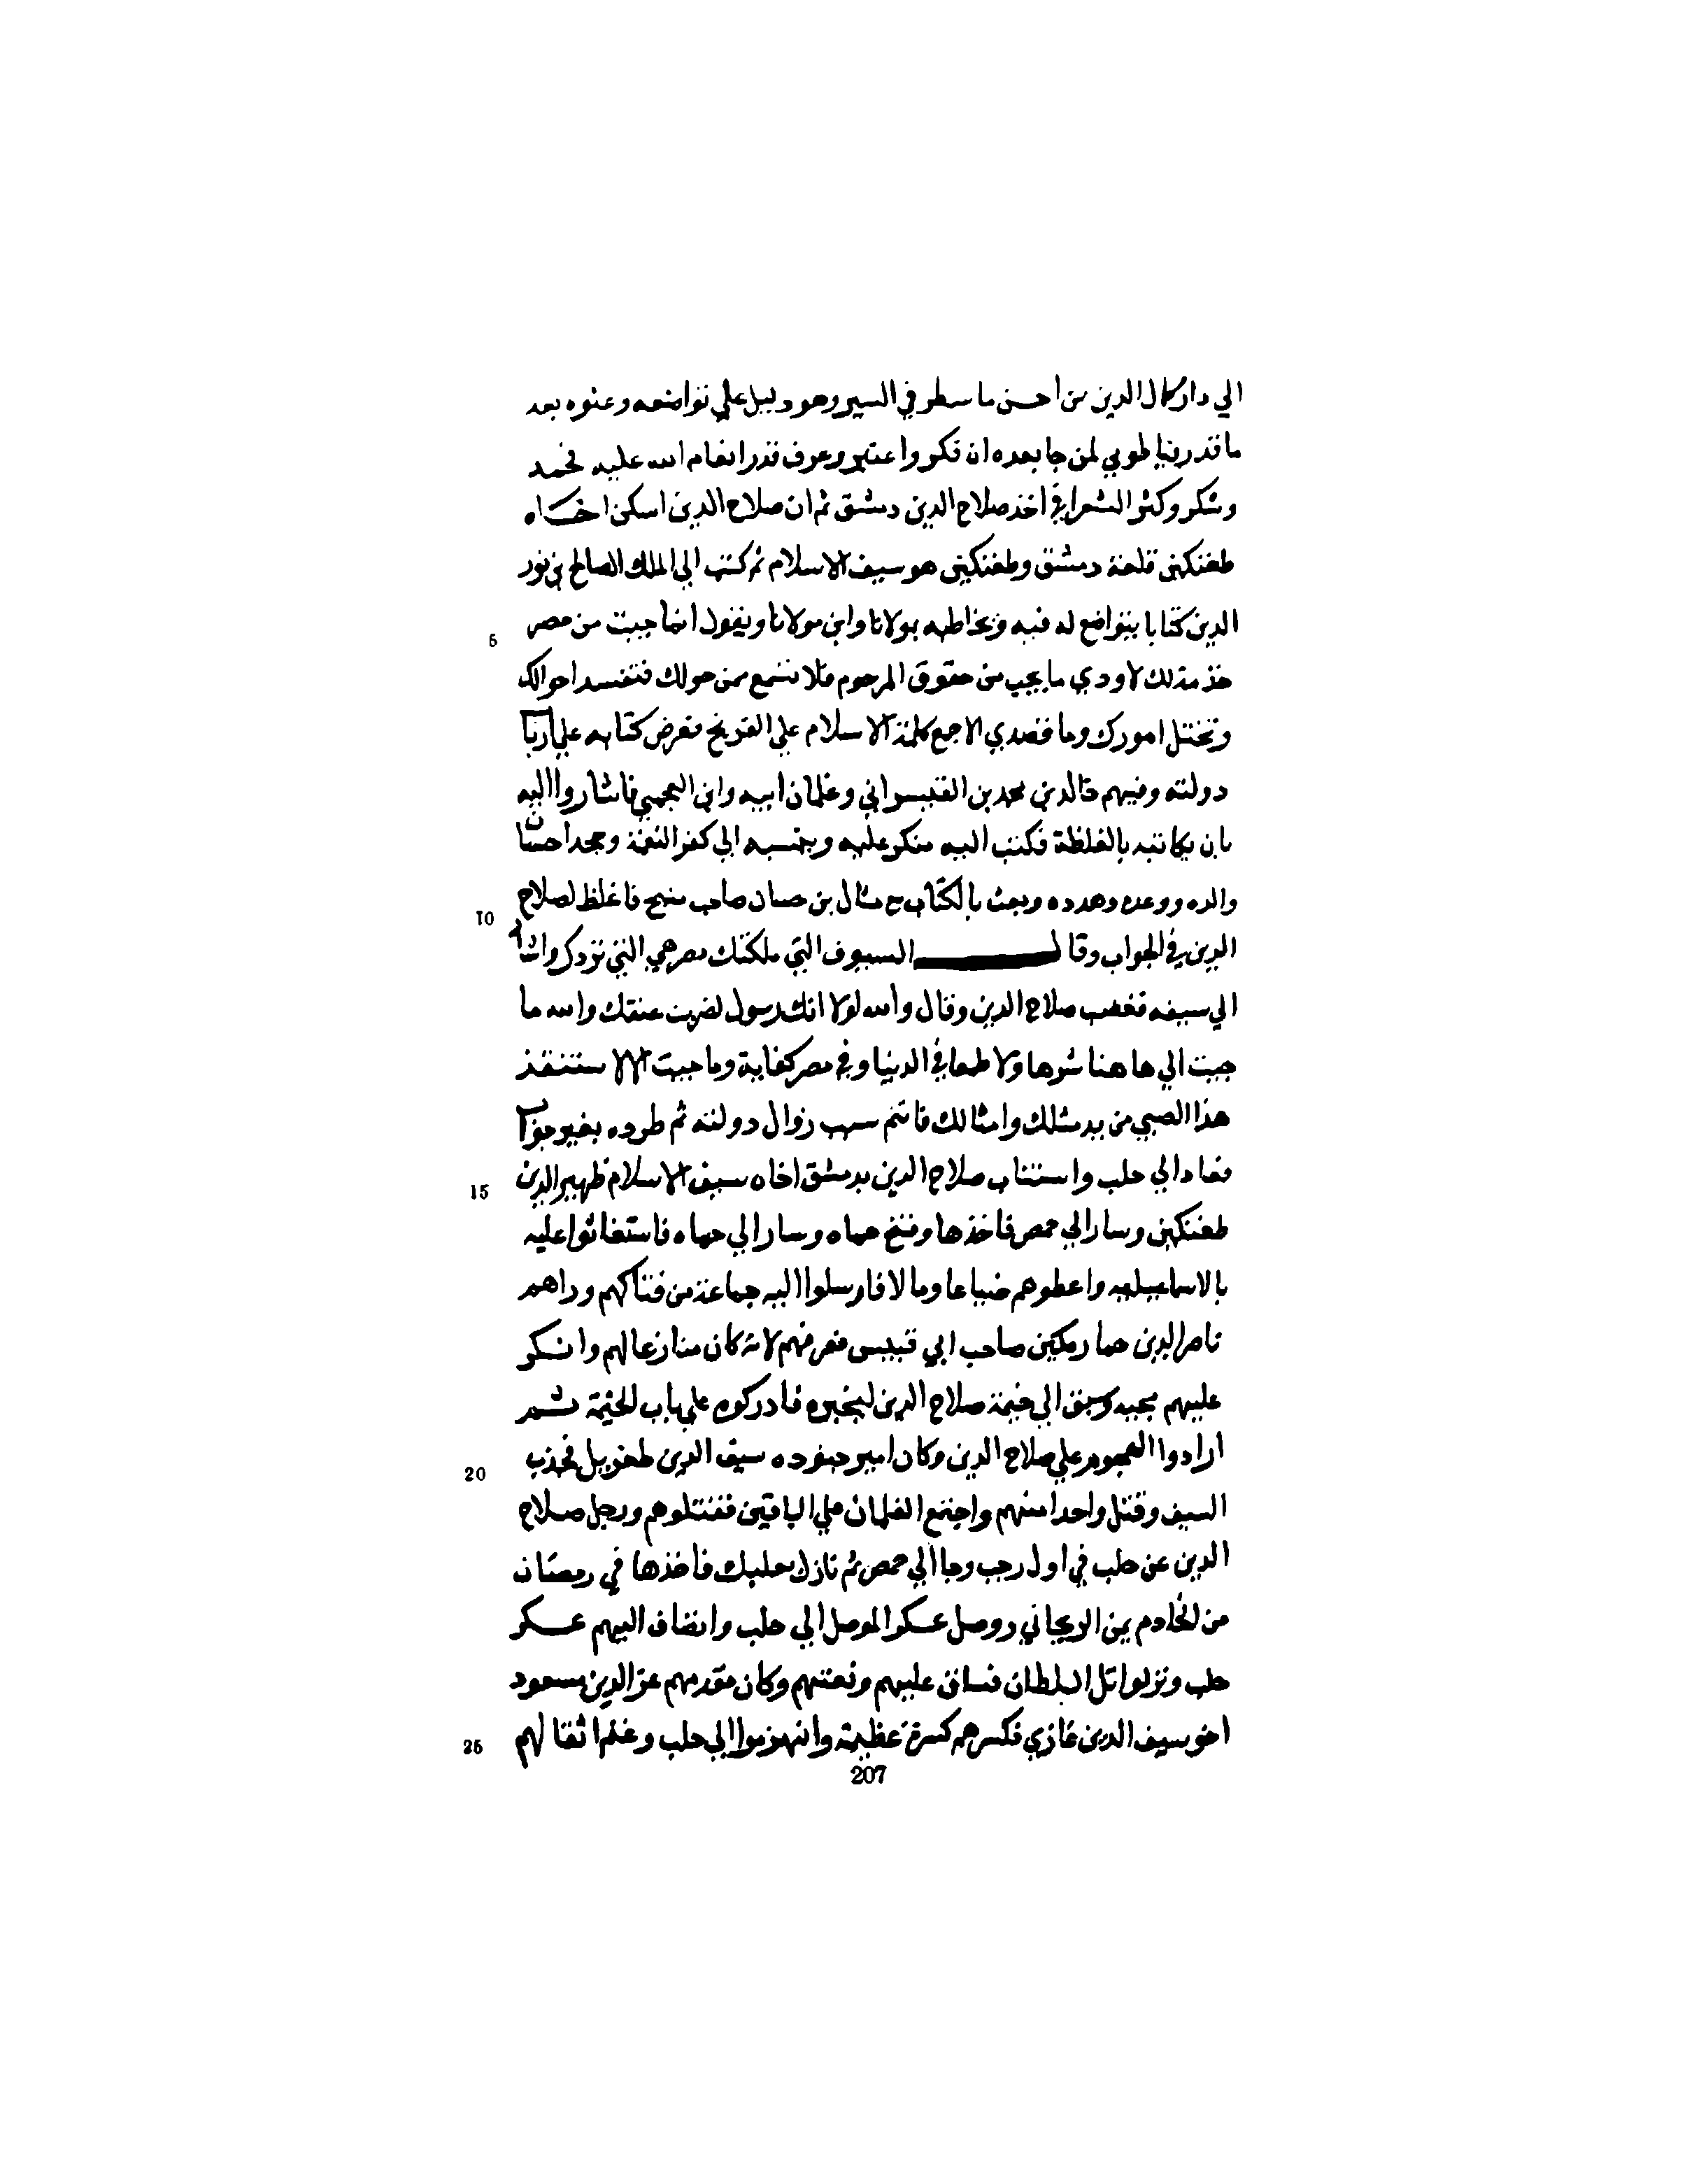 الي دار كمال الدين من احسن ما سطر في السير وهو دليل علي تواضعه وعنوه بعد
ما قدر فيا طوبي لمن جا بعده ان فكر واعتبر وعرف قدر انعام الله عليه فحمد
وشكر وكثر الشعرا في اخذ صلاح الدين دمشق ثم ان صلاح الدين اسكن اخاه
طغتكين قلعة دمشق وطغتكين هو سيف الاسلام ثم كتب الي الملك الصالح بن نور
الدين كتابا يتواضع له فيه ويخاطبه بمولانا وابن مولانا ويقول انما جيت من مصر
5
خدمة لك لاودي ما يجب من حقوق المرحوم فلا تسمع ممن حولك فتفسد احوالك
وتختل امورك وما قصدي الا جمع كلمة الاسلام علي الفرنج فعرض كتابه علي ارباب
دولته وفيهم خالد بن محمد بن القيسراني وغلمان ابيه وابن العجمي فاشاروا اليه
بان يكاتبه بالغلظة فكتب اليه منكر عليه وينسبه الي كفر النعمة وجحد احسان
والده ووعده وهدده وبعث بالكتاب مع ينال بن حسان صاحب منبج فاغلظ لصلاح
10
الدين في الجواب وقال السيوف التي ملكتك مصر هي التي تردك واشار
الي سيفه فغضب صلاح الدين وقال والله لولا انك رسول لضربت عنقك والله ما
جيت الي هاهنا شرها ولا طمعا في الدنيا وفي مصر كفاية وما جيت الا لاستنقذ
هذا الصبي من يد مثلك وامثالك فانتم سبب زوال دولته ثم طرده بغير جواب
فعاد الي حلب واستناب صلاح الدين بدمشق اخاه سيف الاسلام ظهير الدين
15
طغتكين وسار الي حمص فاخذها وفتح حماه وسار الي حماه فاستغاثوا عليه
بالاسماعيليه واعطوهم ضياعا ومالا فارسلوا اليه جماعة من فتاكهم وراهم
ناصر الدين خمارتكين صاحب ابي قبيس فعرفهم لانه كان منازعا لهم وانكر
عليهم مجيه وسبق الي خيمة صلاح الدين ليخبره فادركوه علي باب الخيمة ثم
ارادوا الهجوم علي صلاح الدين وكان امير جنوده سيف الدين طغريل فجذب
20
السيف وقتل واحدا منهم واجتمع الغلمان علي الباقين فقتلوهم ورحل صلاح
الدين عن حلب في اول رجب وجا الي حمص ثم نازل بعلبك فاخذها في رمضان
من الخادم يمن الريحاني ووصل عسكر الموصل الي حلب وانضاف اليهم عسكر
حلب ونزلوا تل السلطان فساق عليهم وبغتهم وكان مقدمهم عز الدين مسعود
اخو سيف الدين غازي فكسرهم كسرة عظيمة وانهزموا الي حلب وغنم اثقالهم
25
207